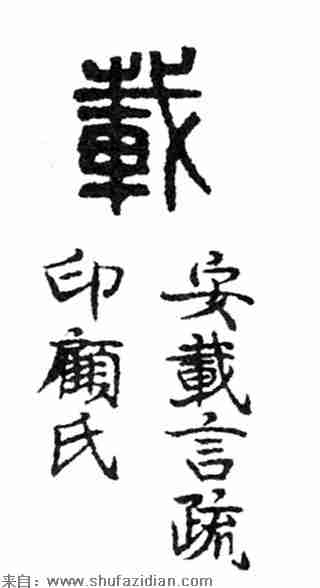 載
安載言疏
印顧氏
来自：www.shufazidian.com